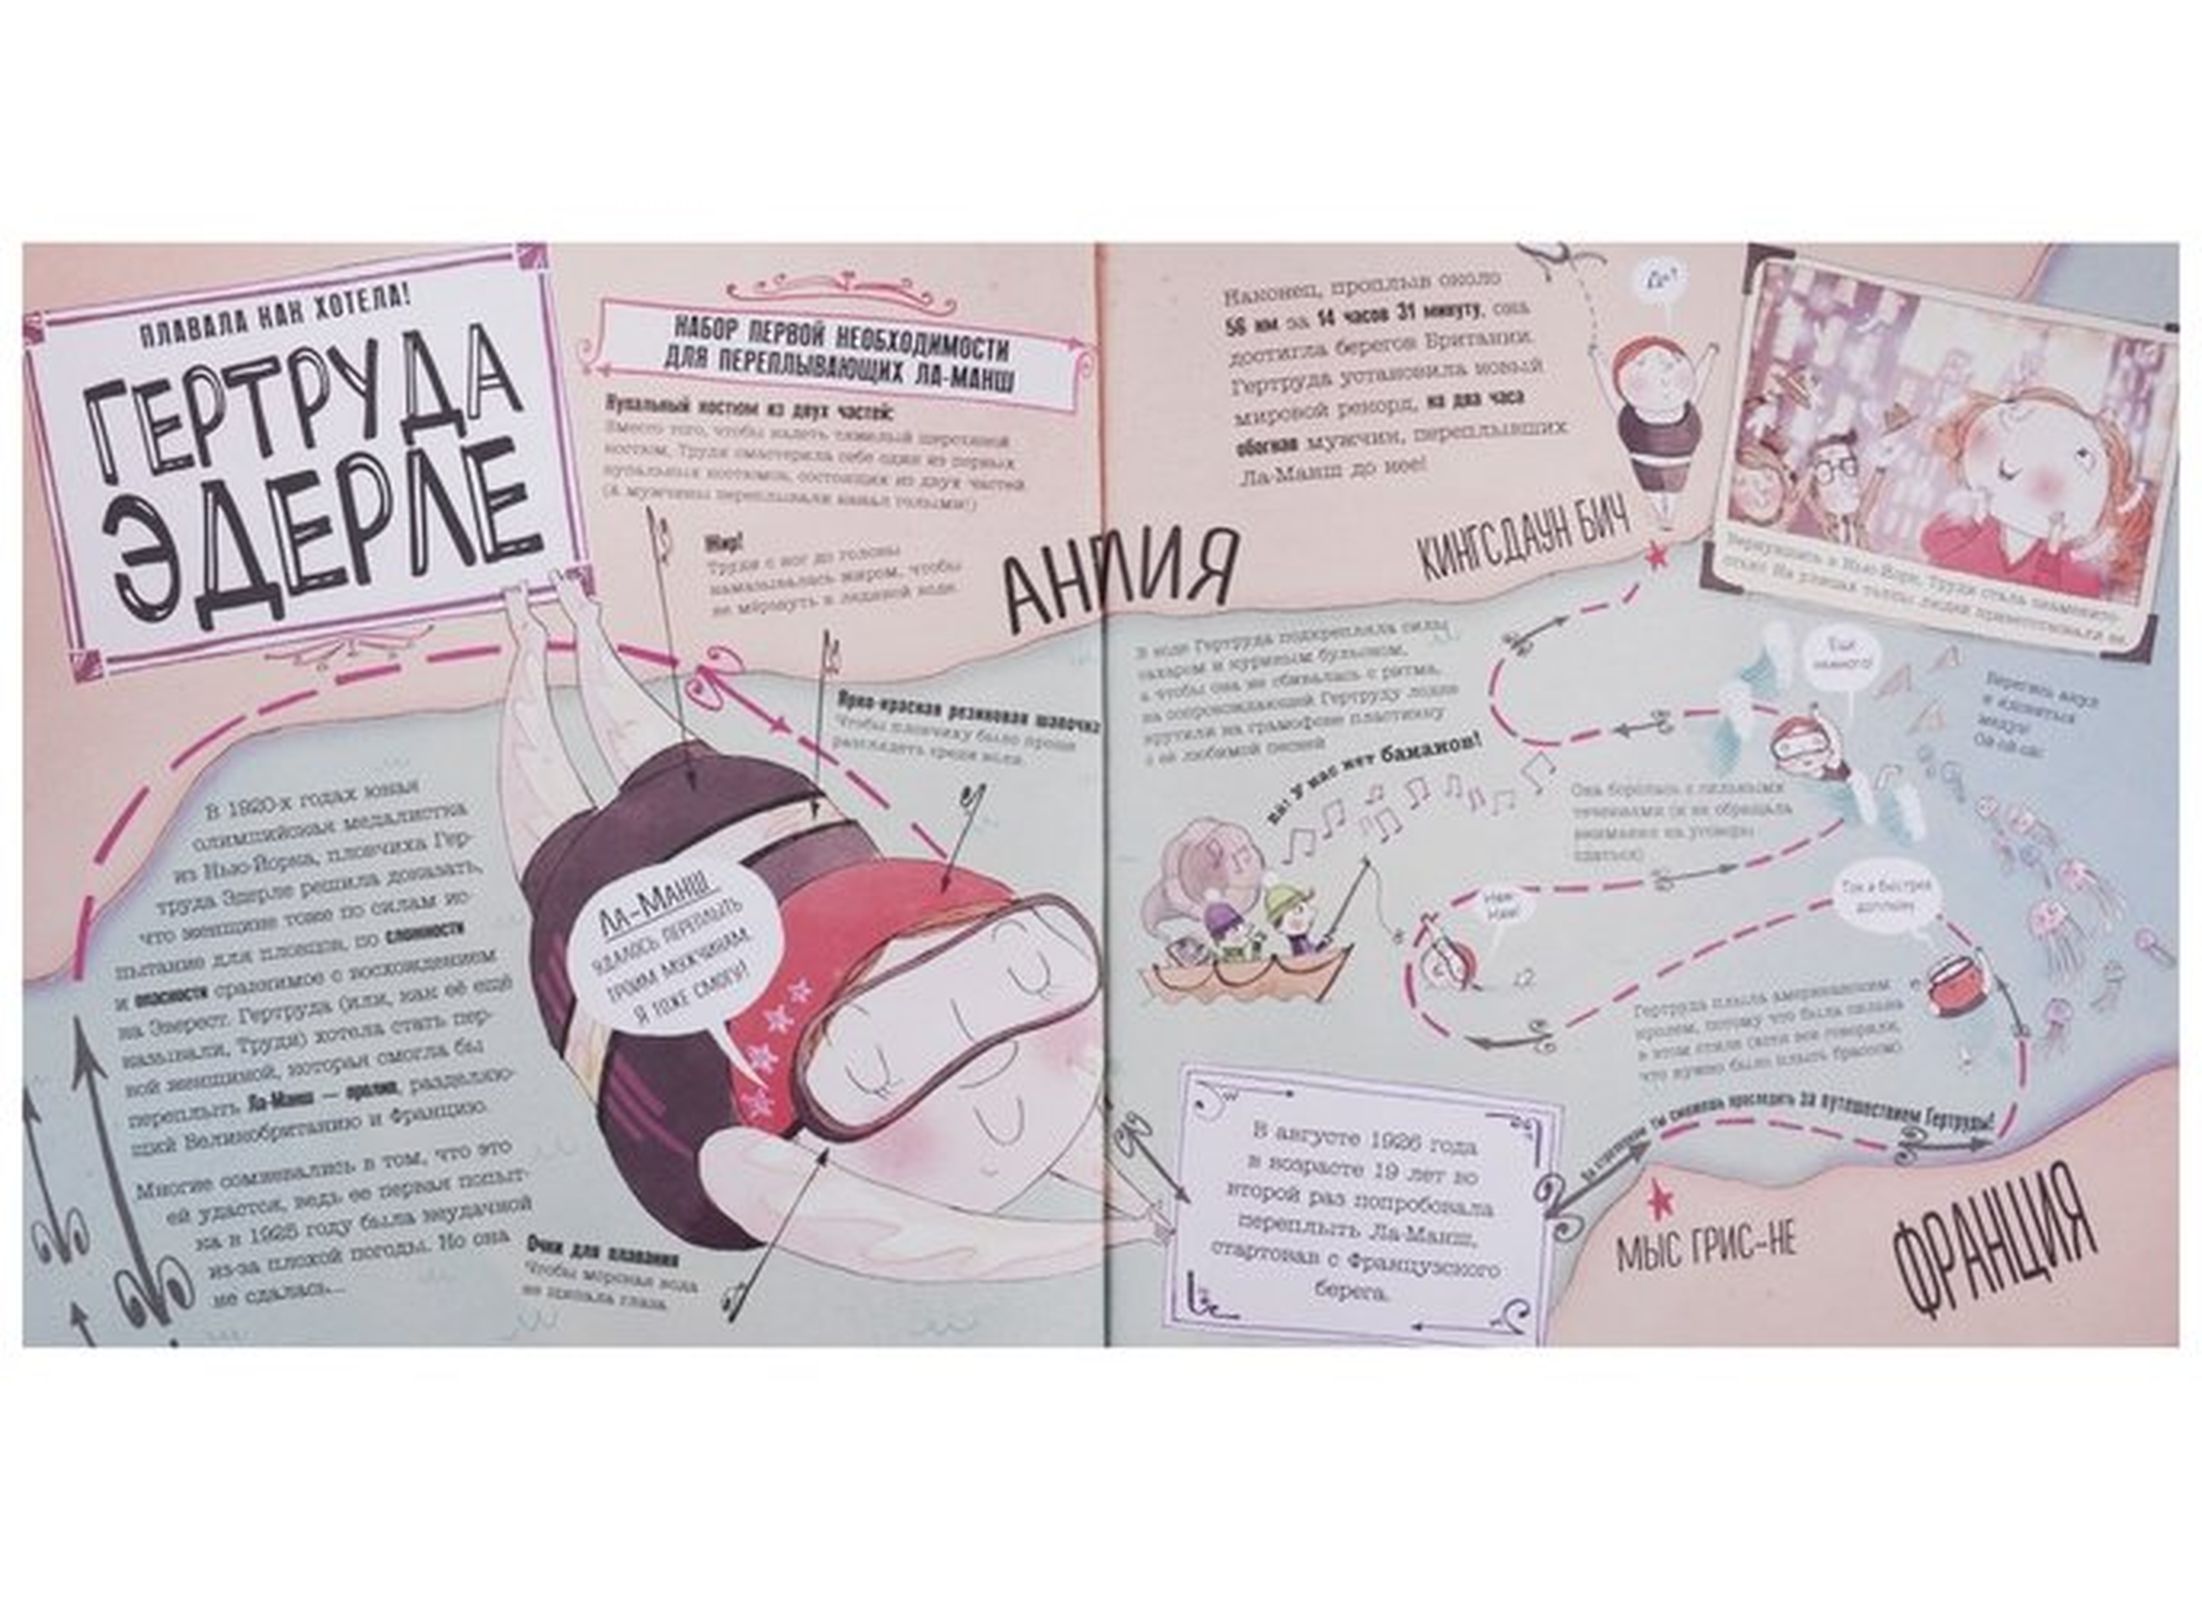 ПЛАВАЛА КАК ХОТЕЛА!
ГЕРТРУДА
ЭДЕРЛЕ
НАБОР ПЕРВОЙ НЕОБХОДИМОСТИ
ДЛЯ ПЕРЕПЛЫВАЮЩИХ ЛА-МАНШ
Купальный костюм из двух частей:
Вместо того, чтобы надеть тяжелый шерстяной
костюм, Труди смастерила себе один из первых
купальных костюмов, состоящих из двух частей
(А мужчины переплывали канал голыми!)
Жир!
Труди с ног до головы
намазывалась жиром, чтобы
не мёрзнуть в ледяной воде.
Ярко-красная резиновая шапочка
Чтобы пловчиху было проще
разглядеть среди волн.
В 1920-х годах юная
олимпийская медалистка
из Нью-Йорка, пловчиха Гер-
труда Эдерле решила доказать,
что женщине тоже по силам ис-
пытание для пловцов, по сложности
и опасности сравнимое с восхождением
на Эверест. Гертруда (или, как её ещё
называли, Труди) хотела стать пер-
вой женщиной, которая смогла бы
переплыть Ла-Манш — пролив, разделяю-
щий Великобританию и Францию.
Многие сомневались в том, что это
ей удастся, ведь ее первая попыт-
ка в 1925 году была неудачной
из-за плохой погоды. Но она
не сдалась...
ЛА-МАНШ
УДАЛОСЬ ПЕРЕПЛЫТЬ
ТРОИМ МУЖЧИНАМ.
Я ТОЖЕ СМОГУ!
Очки для плавания
Чтобы морская вода
не щипала глаза
АНГЛИЯ
Наконец, проплыв около
56 км за 14 часов 31 минуту, она
достигла берегов Британии.
Гертруда установила новый
мировой рекорд, на два часа
обогнав мужчин, переплывших
Ла-Манш до нее!
КИНГСДАУН БИЧ
Вернувшись в Нью-Йорк, Труди стала знаменито-
стью! На улицах толпы людей приветствовали ее.
В воде Гертруда подкрепляла силы
сахаром и куриным бульоном,
а чтобы она не сбивалась с ритма,
на сопровождавшей Гертруду лодке
крутили на граммофоне пластинку
с её любимой песней
Ей! У нас нет бананов!
Ещё
немного!
Берегись акул
и ядовитых
медуз!
Ой-ой-ой!
Она боролась с сильными
течениями (и не обращала
внимания на уговоры
сдаться)
Ням-
Ням!
Так я быстрее
доплыву
Гертруда плыла американским
кролем, потому что была сильна
в этом стиле (хотя все говорили,
что нужно было плыть брассом)
По стрелочкам ты сможешь проследить за путешествием Гертруды!
В августе 1926 года
в возрасте 19 лет во
второй раз попробовала
переплыть Ла-Манш,
стартовав с Французского
берега.
МЫС ГРИС-НЕ
ФРАНЦИЯ